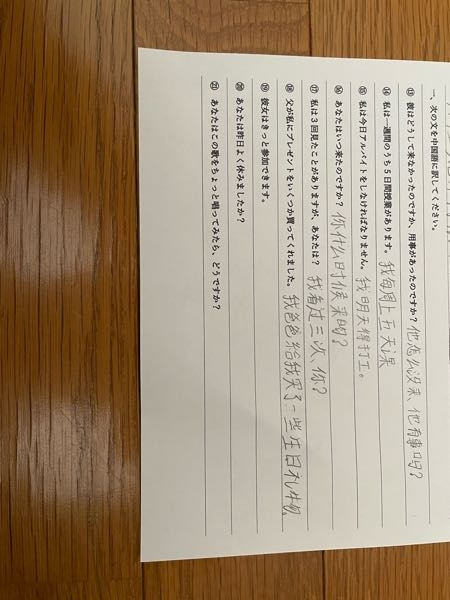 一、次の文を中国語に訳してください。
⑬ 彼はどうして来なかったのですか、用事があったのですか？ 他怎么没来、他有事吗？
⑭ 私は一週間のうち５日間授業があります。 我每周上五天课
⑮ 私は今日アルバイトをしなければなりません。 我明天得打工。
⑯ あなたはいつ来たのですか？ 你什么时候来的？
⑰ 私は３回見たことがありますが、あなたは？ 我看过三次、你？
⑱ 父が私にプレゼントをいくつか買ってくれました。 我爸爸给我买了一些生日礼物。
⑲ 彼女はきっと参加できます。
⑳ あなたは昨日よく休みましたか？
㉑ あなたはこの歌をちょっと唱ってみたら、どうですか？